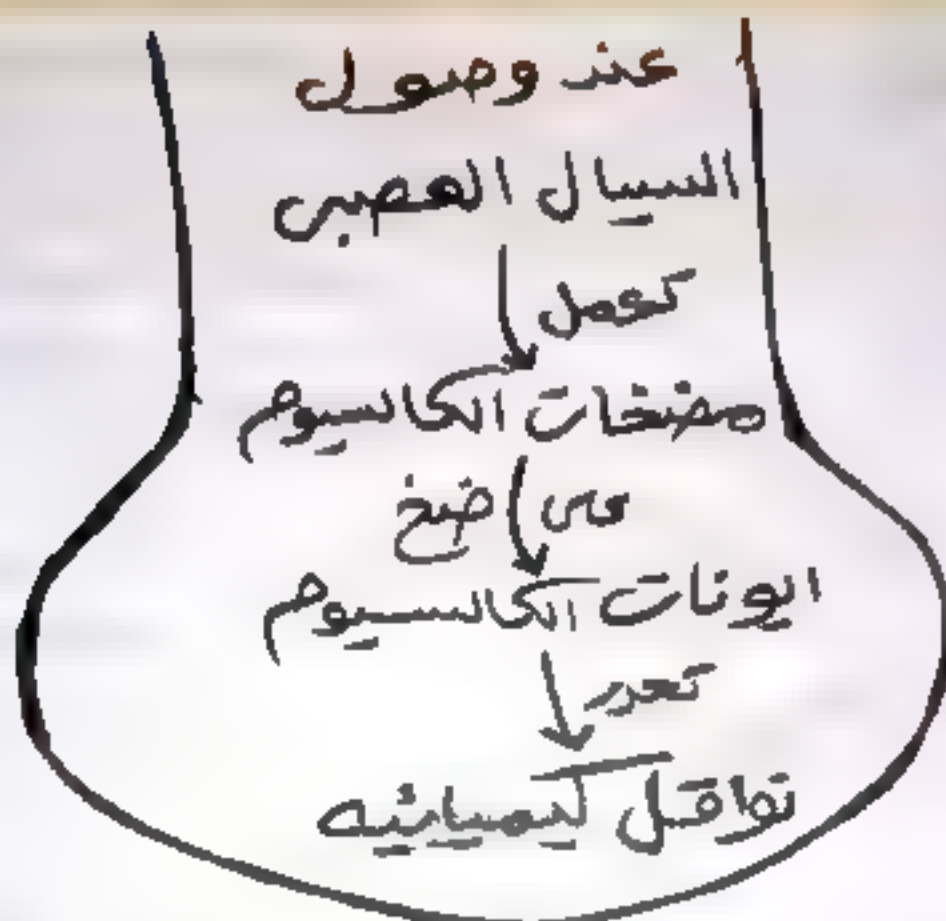 عند وصول
السيال العصبى
تعمل
مضخات الكالسيوم
على ضخ
ايونات الكالسيوم
تحرر
نواقل كيميائيه